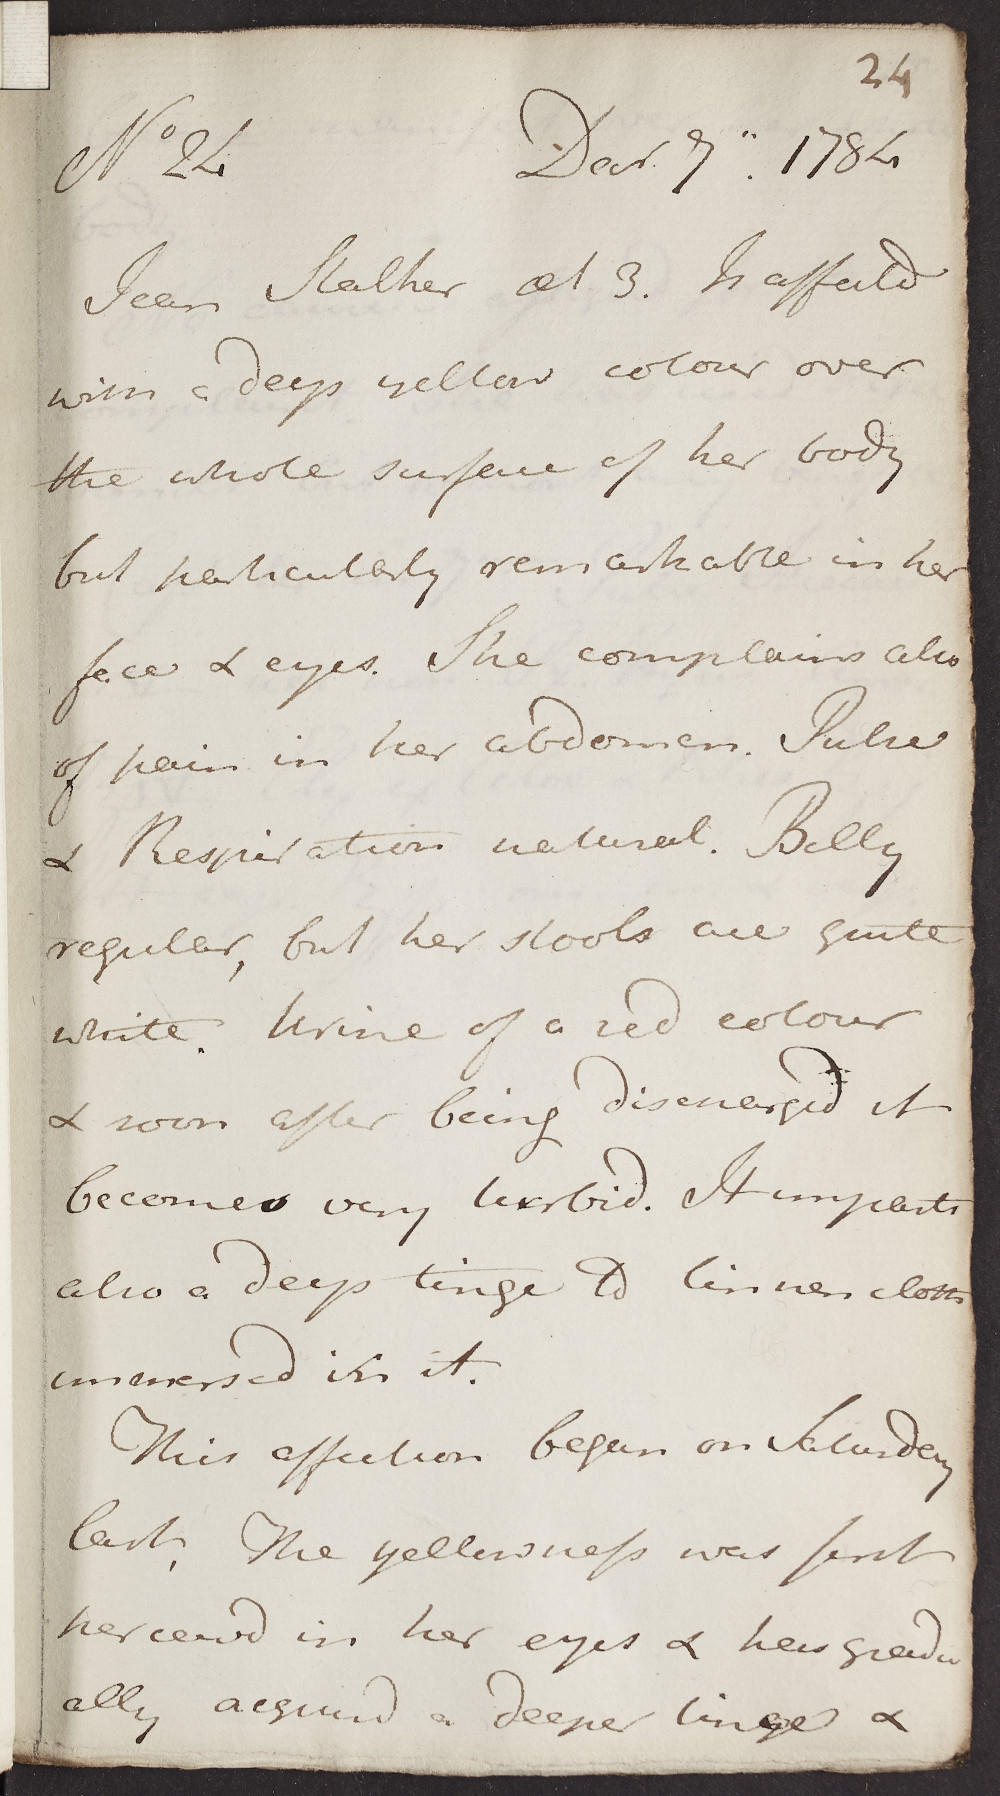 24
No 24 Decr. 7th. 1784
Jean Stalker æt 3. Is affected
with a deep yellow colour over
the whole surface of her body
but particularly remarkable in her
face & eyes. She complains also
of pain in her abdomen. Pulse
& Respiration natural. Belly
regular, but her stools are quite
white. Urine of a red colour
& soon after being discharged it
becomes very turbid. It imparts
also a deep tinge to linnen cloth
immersed in it.
This affection began on Saturday
last. The yellowness was first
perceived in her eyes & has gradu
ally acquired a deeper tinge &